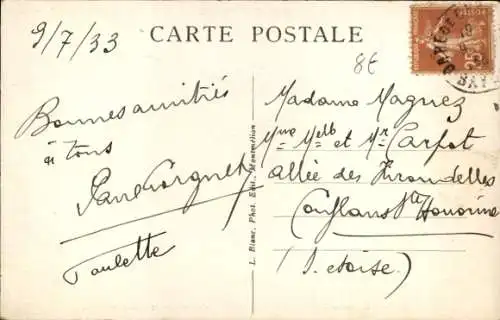 9/7/33
CARTE POSTALE
8€
Bonnes amitiés
à tous
Paulette
L. Blanc, Phot. Edit., 
Madame Magnez
Mme Melle et Mr Carfot
allée des Hirondelles
Conflans Ste Honorine
(S. et oise)